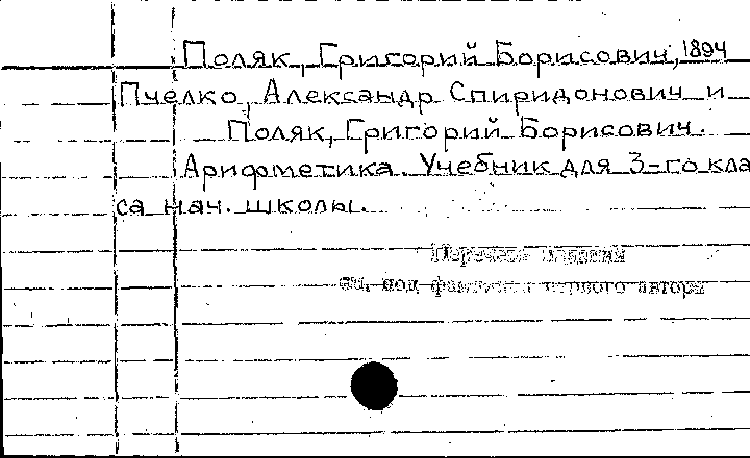 Поляк, Григорий Борисович, 1894
Пчелко, Александр Спиридонович и
Поляк, Григорий Борисович.
Арифметика. Учебник для 3-го кла
са нач. школы.
Перечень изданий
см. под фамилией первого автора